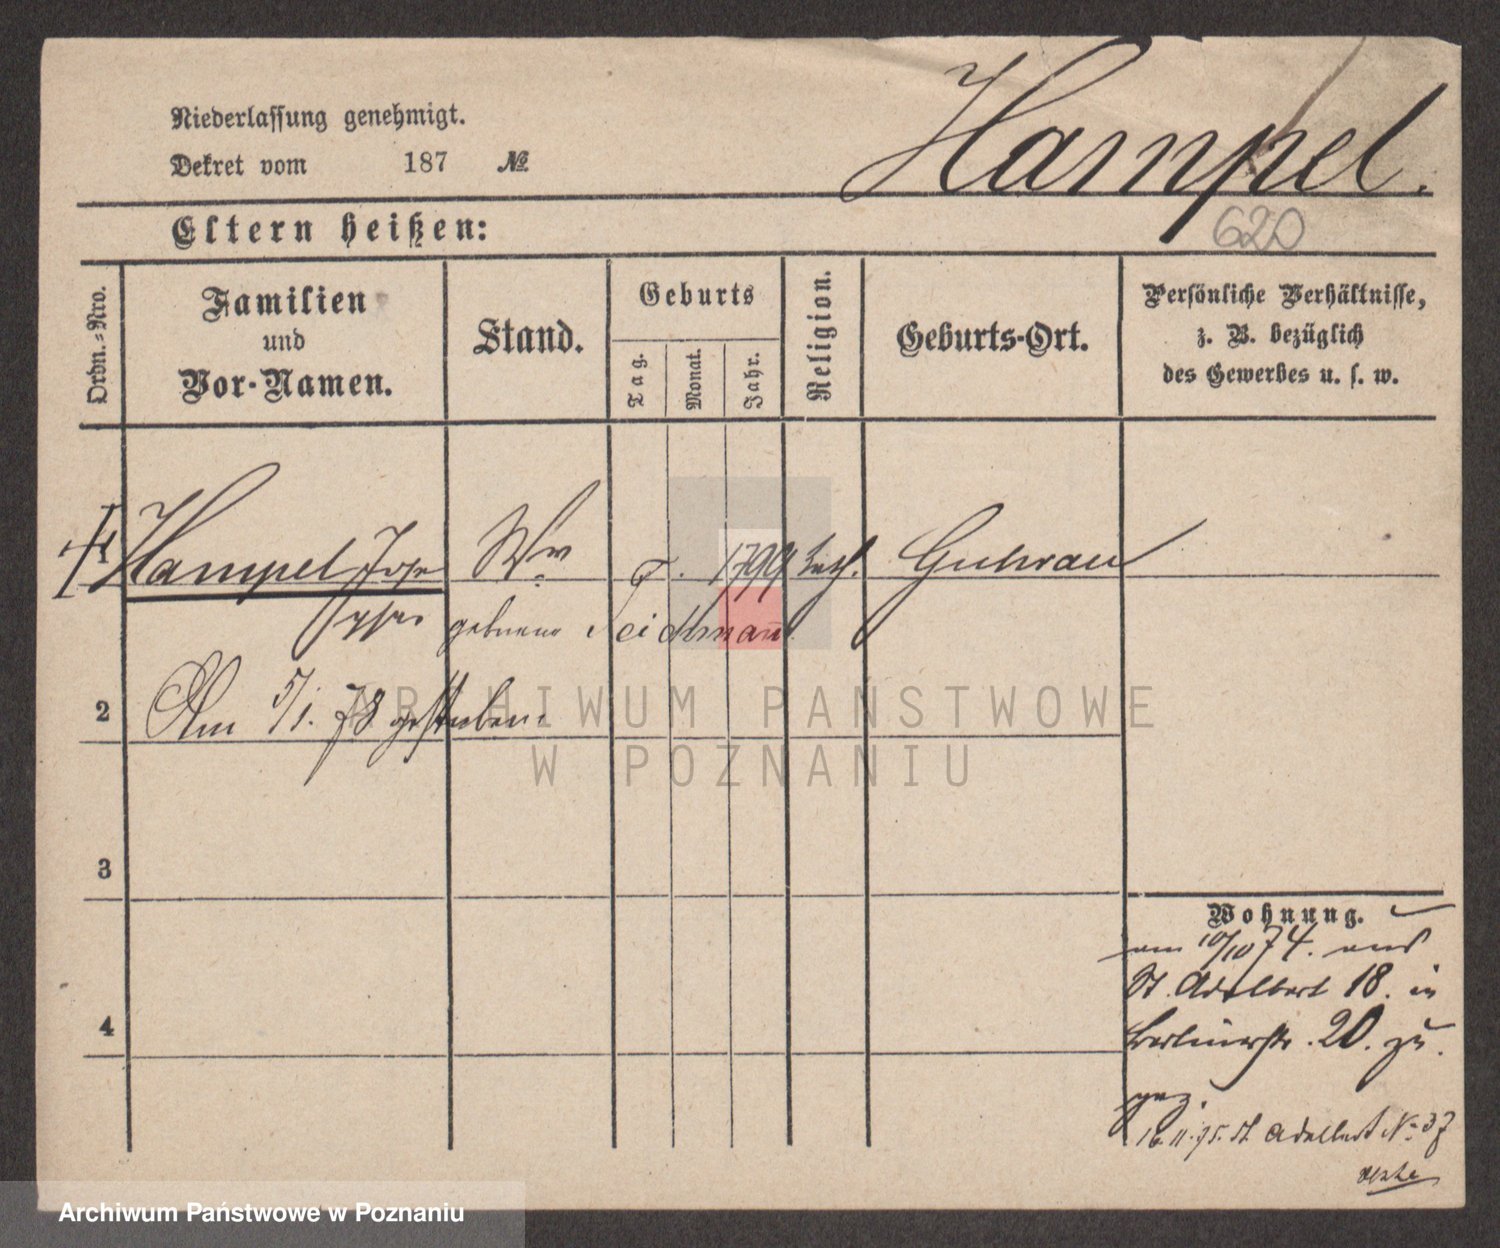 Niederlassung genehmigt.
Dekret vom 187 №
Hampel.
620
Eltern heißen:
Ordn.-Nro.
Familien
und
Vor-Namen.
Stand.
Geburts
Tag.
Monat.
Jahr.
Religion.
Geburts-Ort.
Persönliche Verhältnisse,
z. B. bezüglich
des Gewerbes u. s. w.
1 Hampel Jose Ww 1799 kath. Guhrau
geborene Seidlmañ
2 Am 5/1. 78 gestorben.
ARCHIWUM PAŃSTWOWE
W POZNANIU
3
4
Wohnung.
am 10/10 74. aus
St. Adalbert 18. in
Berlinerstr. 20. zu
gez.
16.11.75. St. Adalbert No 37
Archiwum Państwowe w Poznaniu